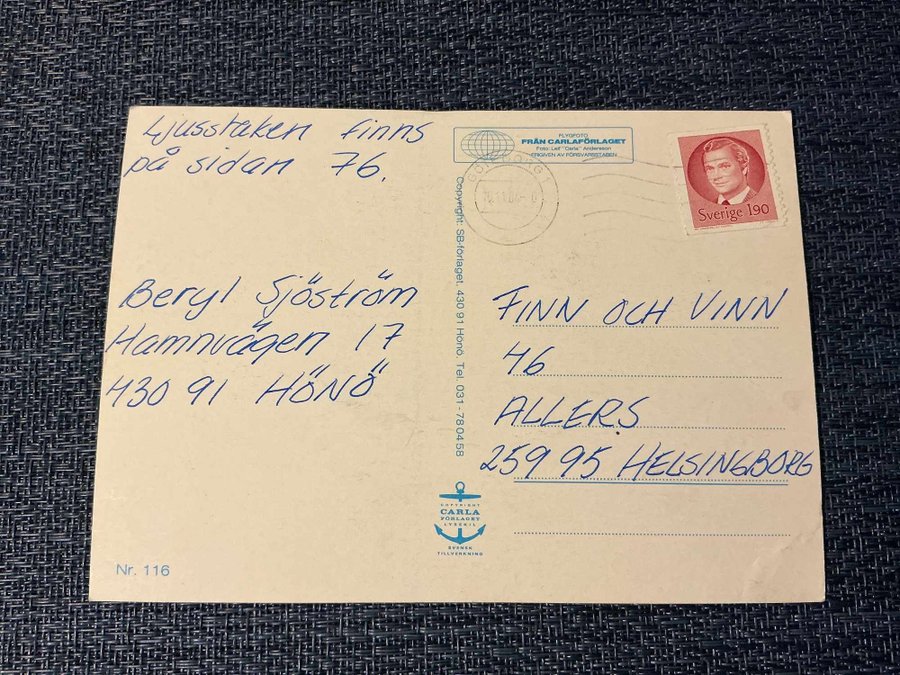 Ljusstaken finns
på sidan 76.
Beryl Sjöström
Hamnvägen 17
430 91 HÖNÖ
Nr. 116
FLYGFOTO
FRÅN CARLAFÖRLAGET
Foto: Leif "Carla" Andersson
FRIGIVEN AV FÖRSVARSSTABEN
Copyright: SB-förlaget. 430 91 Hönö. Tel. 031 - 78 04 58
COPYRIGHT
CARLA
FÖRLAGET
LYSEKIL
SVENSK
TILLVERKNING
GÖTEBORG 1
Sverige 190
FINN OCH VINN
46
ALLERS
259 95 HELSINGBORG